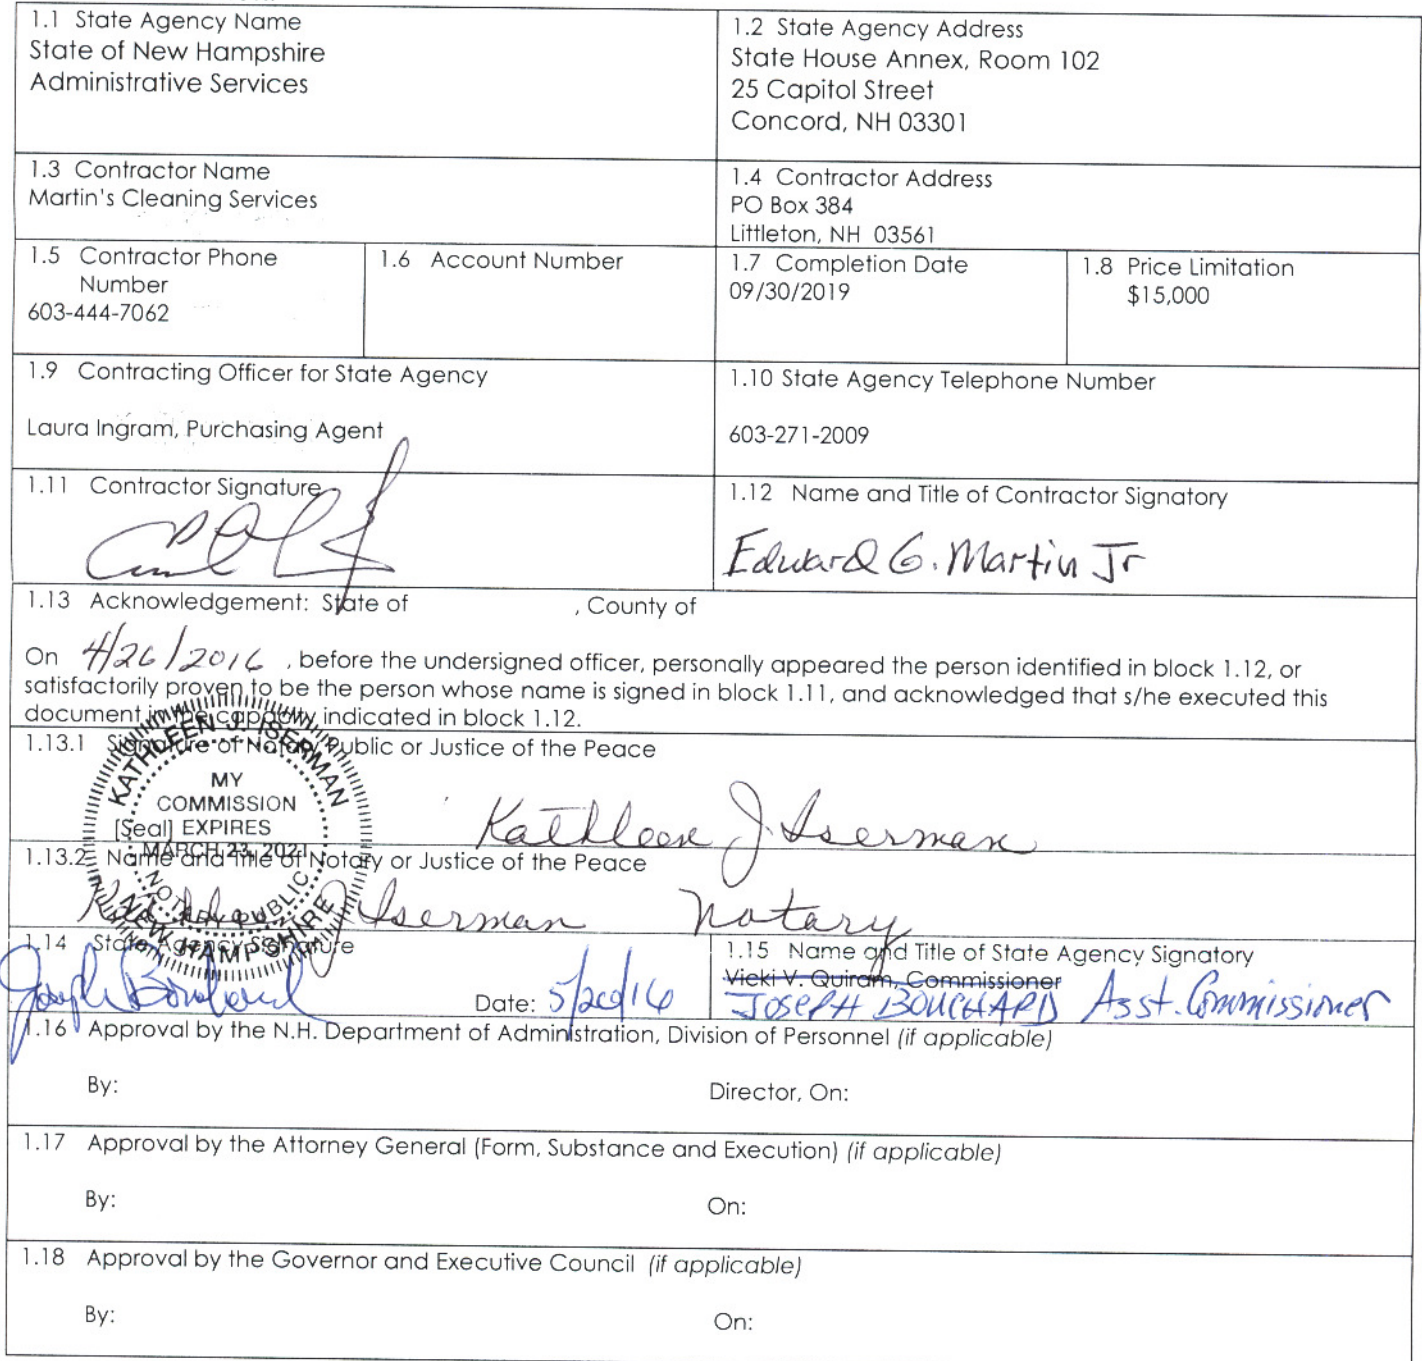 1.1 State Agency Name
State of New Hampshire
Administrative Services
1.2 State Agency Address
State House Annex, Room 102
25 Capitol Street
Concord, NH 03301
1.3 Contractor Name
Martin's Cleaning Services
1.4 Contractor Address
PO Box 384
Littleton, NH 03561
1.5 Contractor Phone
Number
603-444-7062
1.6 Account Number
1.7 Completion Date
09/30/2019
1.8 Price Limitation
$15,000
1.9 Contracting Officer for State Agency
Laura Ingram, Purchasing Agent
1.10 State Agency Telephone Number
603-271-2009
1.11 Contractor Signature
1.12 Name and Title of Contractor Signatory
Edward G. Martin Jr
1.13 Acknowledgement: State of , County of
On 4/26/2016 , before the undersigned officer, personally appeared the person identified in block 1.12, or
satisfactorily proven to be the person whose name is signed in block 1.11, and acknowledged that s/he executed this
document in the capacity indicated in block 1.12.
1.13.1 Signature of Notary Public or Justice of the Peace
KATHLEEN J. ISERMAN
MY
COMMISSION
[Seal] EXPIRES
MARCH 23, 2021
NOTARY PUBLIC
NEW HAMPSHIRE
Kathleen J. Iserman
1.13.2 Name and Title of Notary or Justice of the Peace
Kathleen J Iserman Notary
1.14 State Agency Signature
Joseph Bouchard
Date: 5/20/16
1.15 Name and Title of State Agency Signatory
Vicki V. Quiram, Commissioner
JOSEPH BOUCHARD Asst. Commissioner
1.16 Approval by the N.H. Department of Administration, Division of Personnel (if applicable)
By: Director, On:
1.17 Approval by the Attorney General (Form, Substance and Execution) (if applicable)
By: On:
1.18 Approval by the Governor and Executive Council (if applicable)
By: On: